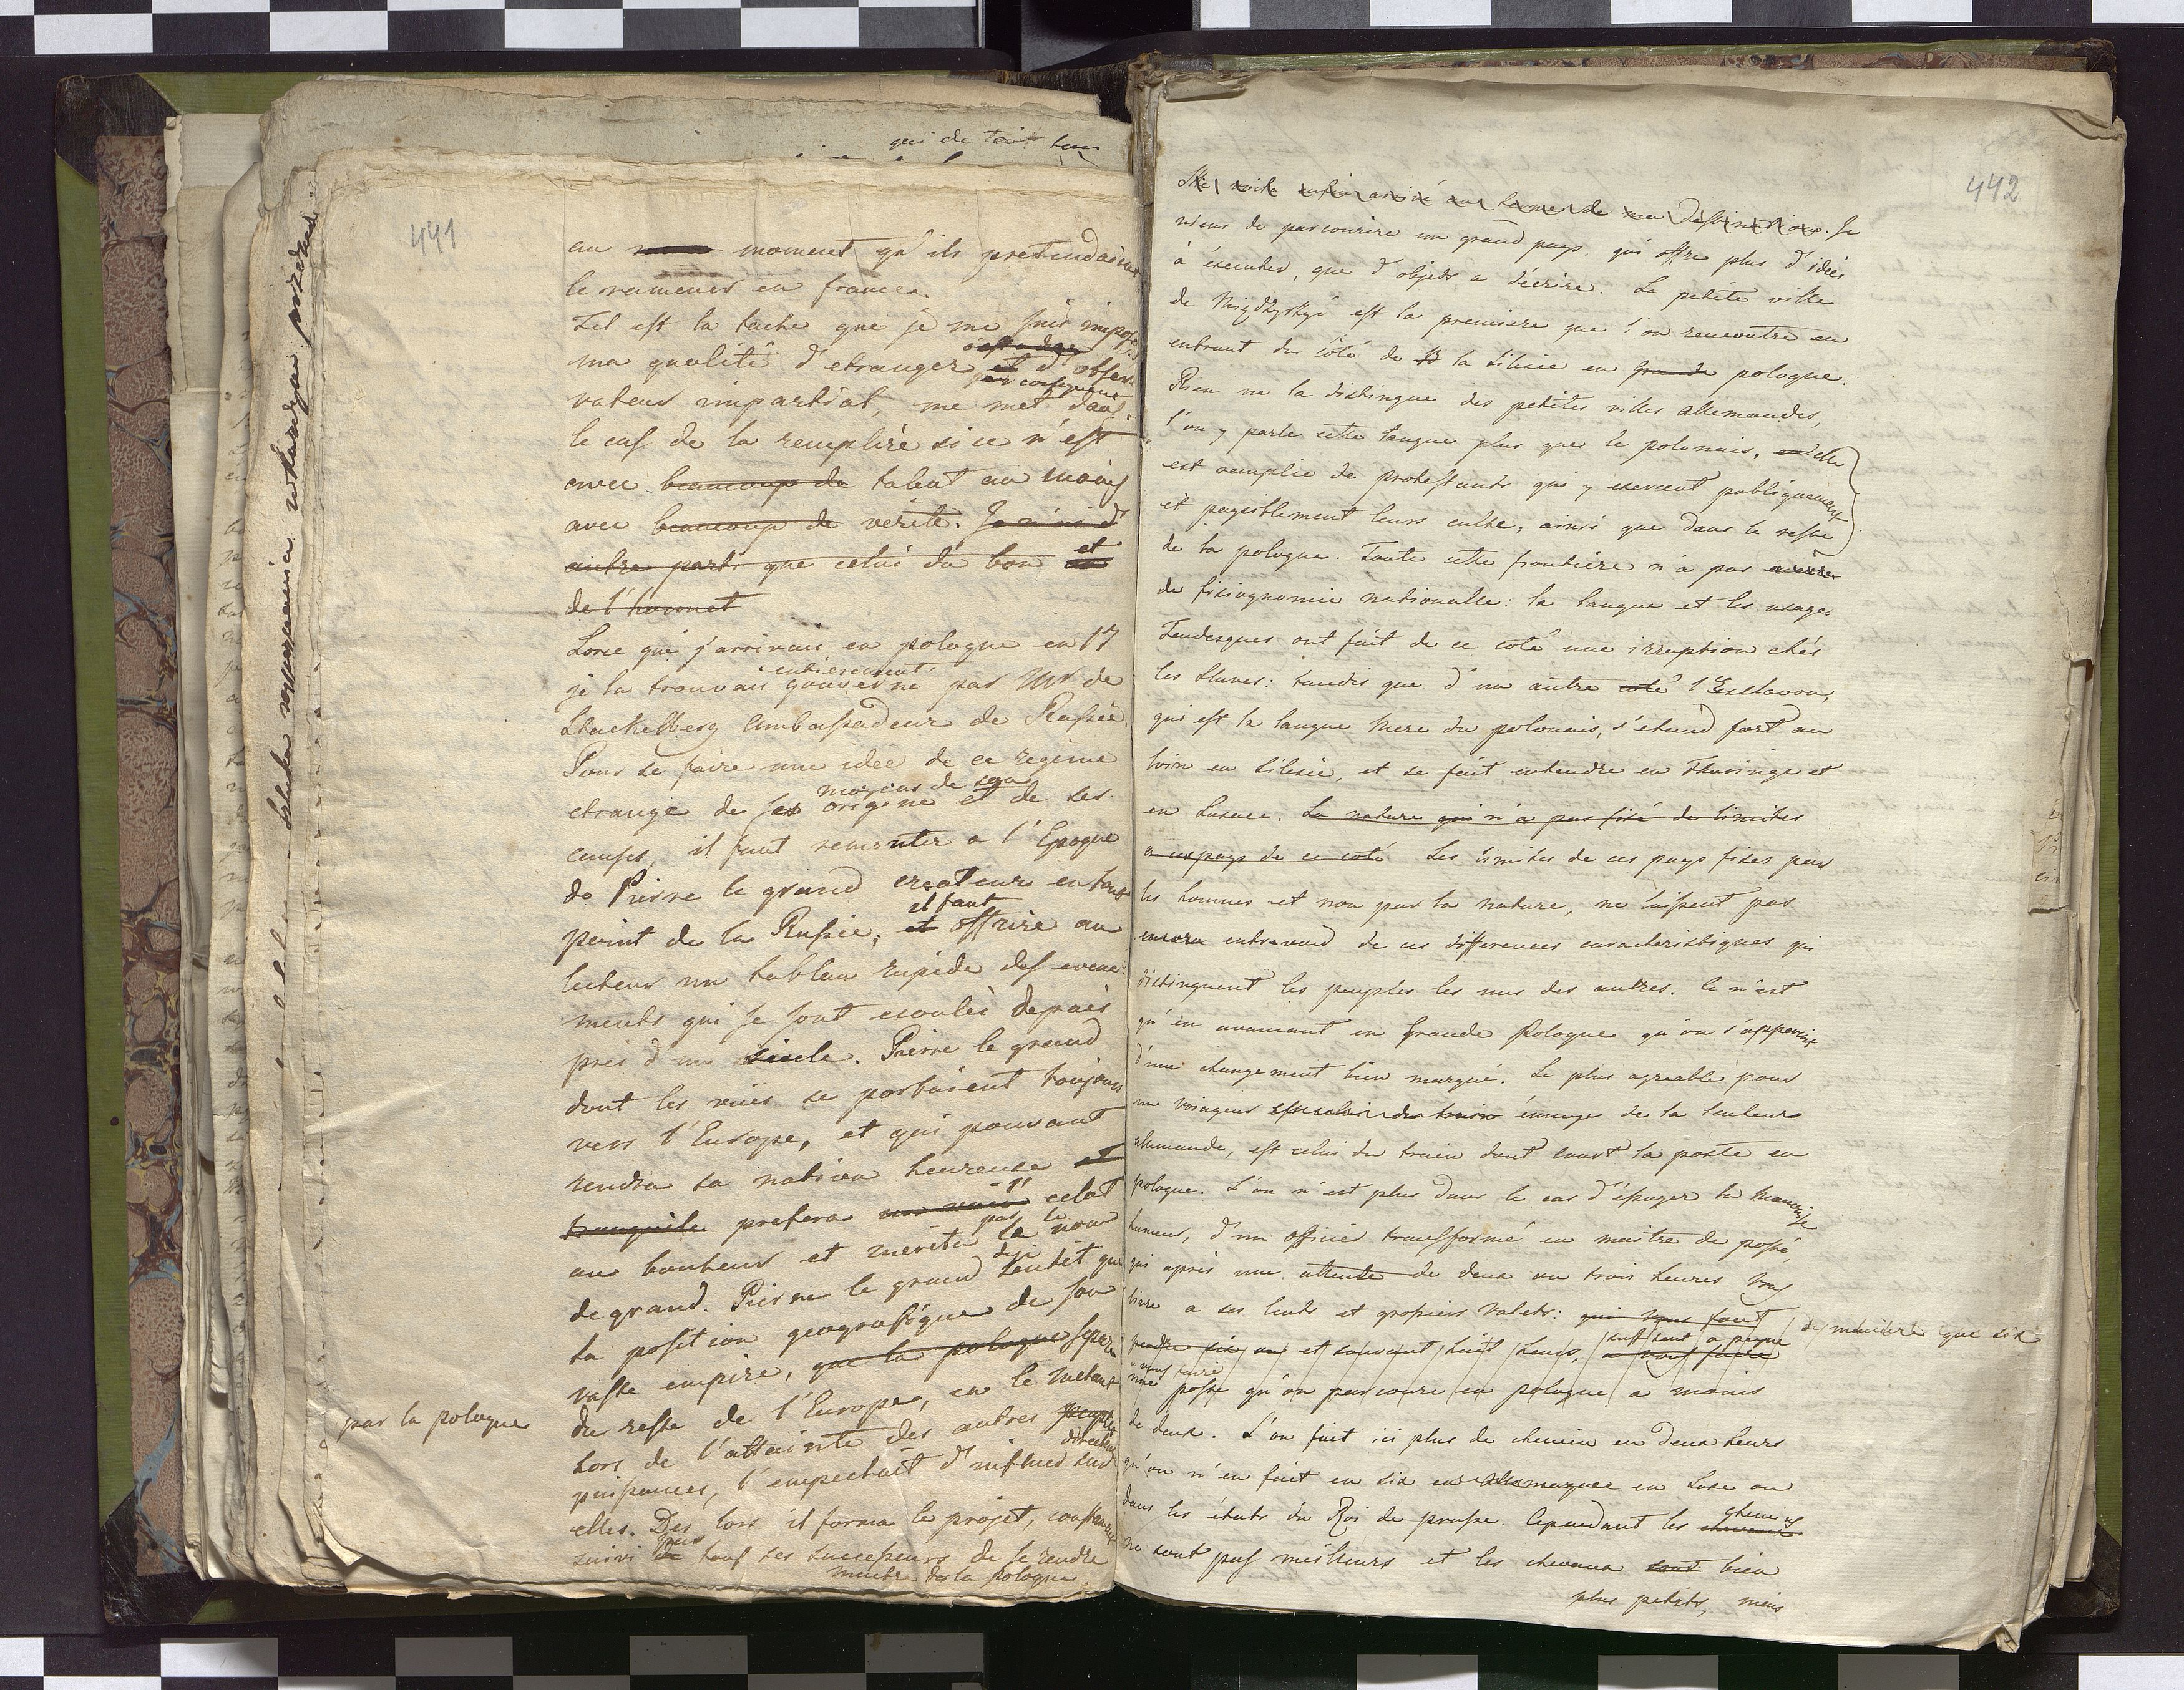 qui de tout tem
441
au moment qu'ils pretendaient
le ramener en france.
Tel est la tache que je me suis impos
ma qualité d'etranger et d'obser-
par consequent
vateur impartial, me met dans
le cas de la remplire si ce n'est
avec beaucoup de talent au moins
avec beaucoup de verité. Je n'ai d'
autre parti que celui du bon et
de l'honnet
Lorce que j'arrivais en pologne en 17
entierement
je la trouvais gouverné par Mr de
Stackelberg Ambassadeur de Russie.
Pour se faire une idée de ce regime
moyens de son
etrange de ses origine et de ses
causes, il faut remonter a l'Epoque
de Pierre le grand createur en tout
il faut
point de la Russie, et offrire au
lecteur un tableau rapide des evene-
ments qui se sont ecoulés depuis
pres d'un siecle. Pierre le grand
dont les vües se portaient toujours
vers l'Europe, et qui pouvant
rendre sa nation heureuse et
tranquile prefera l'eclat
au bonheur et merita par la le nom
de grand. Pierre le grand dis-je sentit que
la position geografique de son
vaste empire, que la pologne separe
par la pologne
du reste de l'Europe, en le metant
hors de l'attainte des autres peuples
puissances, l'empechait d'influer directem sur
elles. Des lors il forma le projet, constament
suivi par tous ses successeurs de se rendre
maitre de la pologne.
442
Me voila enfin arrivé au terme de ma destination. Je
viens de parcourire un grand pays, qui offre plus d'idées
à éxecuter, que d'objets a décrire. La petite ville
de Migdzyrzyc est la premiere que l'on rencontre en
entrant du côté de la Silesie en grande pologne.
Rien ne la distingue des petites villes allemandes,
l'on y parle cette langue plus que le polonais, elle
est remplie de protestants qui y exercent publiquement
et paysiblement leurs culte, ainsi que dans le reste
de la pologne. Toute cette frontière n'a pas
de fisiognomie nationalle: la langue et les usages
Tudesques ont fait de ce coté une irruption chés
les Slaves: tandis que d'un autre coté l'Esclavon,
qui est la langue Mere du polonais, s'etend fort au
loin en Silesie, et se fait entendre en Thuringe et
en Lusace. La nature qui n'a pas fixé de limites
a ces pays de ce coté Les limites de ces pays fixés par
les hommes et non par la nature, ne laissent pas
encore entrevoir de ces differences caracteristiques qui
distinguent les peuples les uns des autres. Ce n'est
qu'en avancant en Grande Pologne qu'on s'apperçoit
d'un changement bien marqué. Le plus agreable pour
un voiageur ennuyé de la lenteur
alemande, est celui du train dont court la poste en
pologne. L'on n'est plus dans le cas d'éssuyer la mauvaise
humeur, d'un officier transformé en maitre de poste,
qui après une attente de deux ou trois heures vous
livre a ses lents et grossiers valets: qui vous font
de manière que six
perdre six ou et souvent huit heurs, suffisent a peine
a vous faire
une poste qu'on parcoure en pologne a moins
de deux. L'on fait ici plus de chemin en deux heurs
qu'on n'en fait en six en Allemagne en Saxe ou
dans les états du Roi de prusse. Cependant les chemins
ne sont pas meilleurs et les chevaux sont bien
plus petits, mais